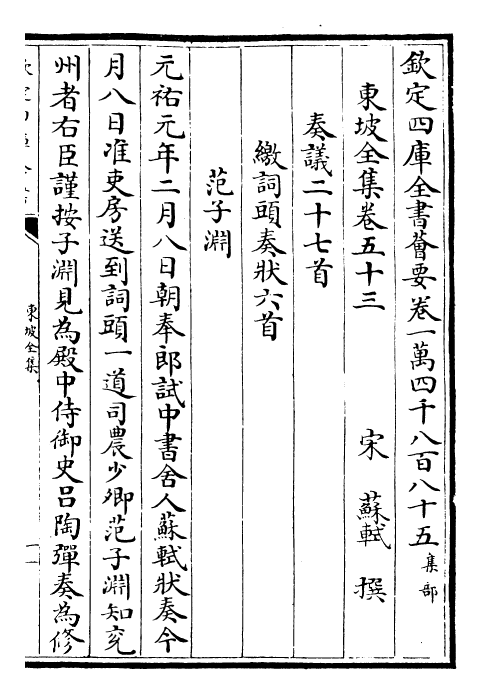 欽定四庫全書薈要卷一萬四千八百八十五 集部
東坡全集卷五十三
宋 蘇軾 撰
奏議二十七首
繳詞頭奏狀六首
范子淵
元祐元年二月八日朝奉郎試中書舍人蘇軾狀奏今
月八日准吏房送到詞頭一道司農少卿范子淵知兖
州者右臣謹按子淵見為殿中侍御史吕陶彈奏為修
東坡全集